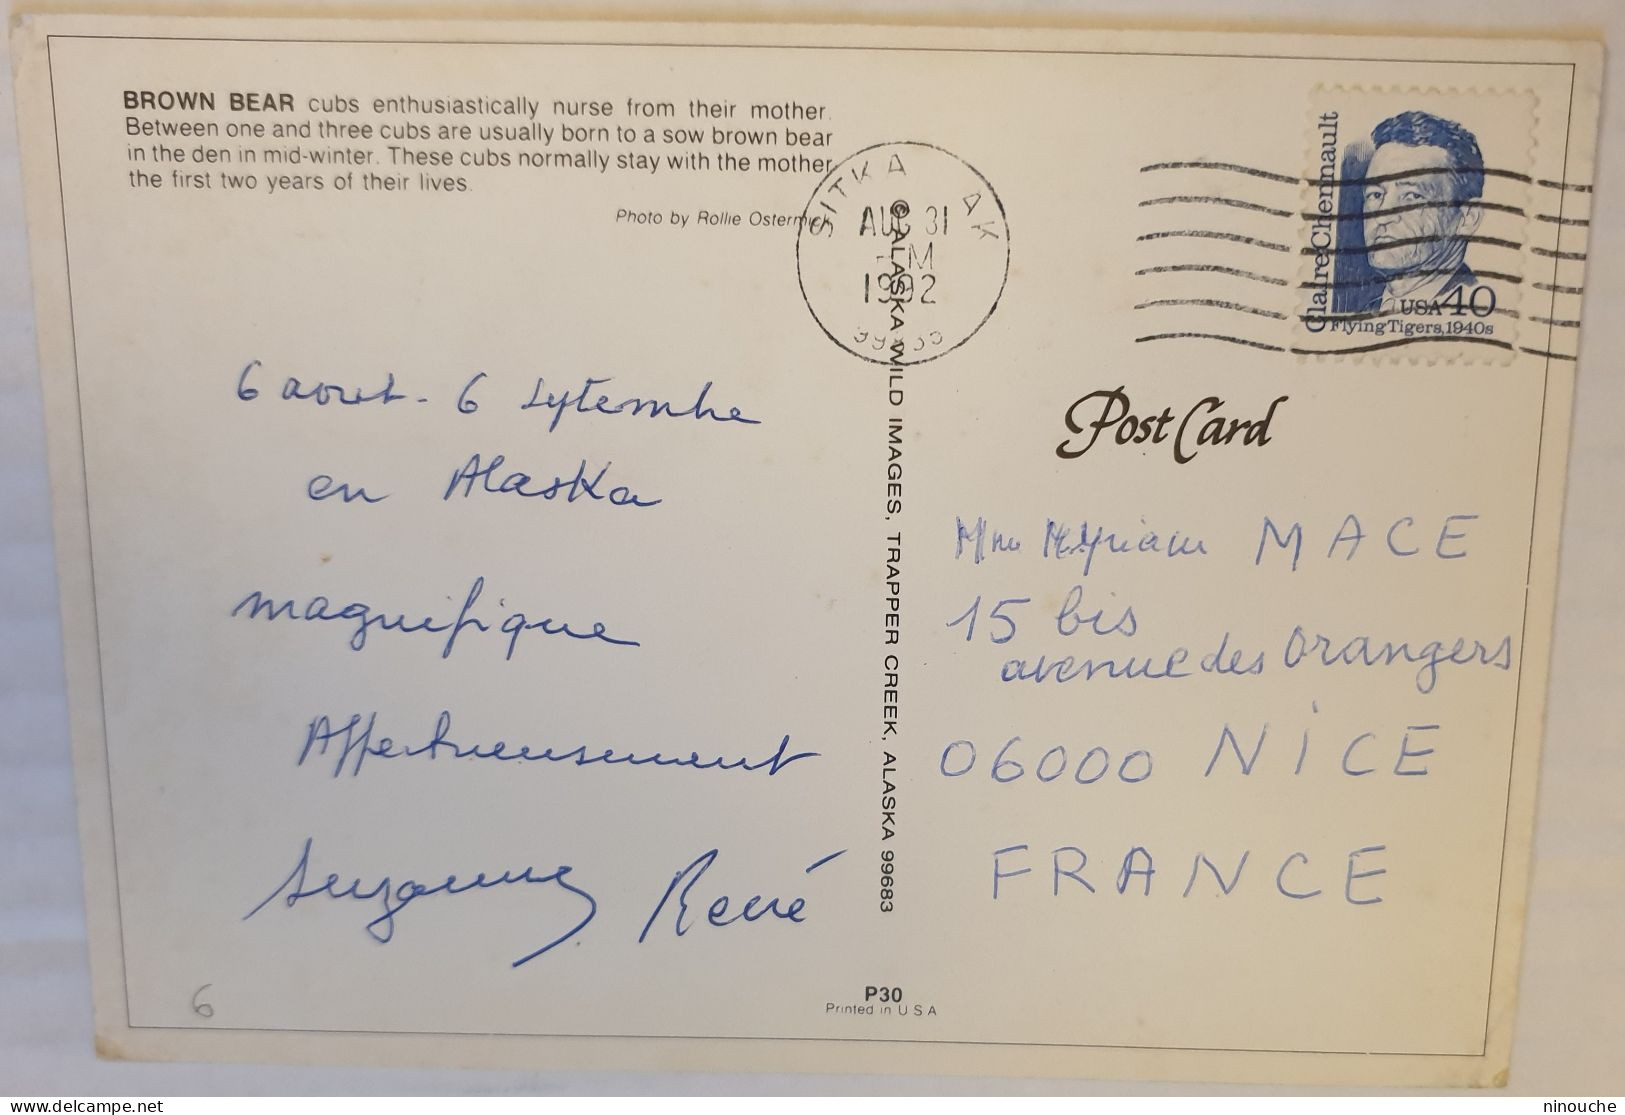 BROWN BEAR cubs enthusiastically nurse from their mother.
Between one and three cubs are usually born to a sow brown bear
in the den in mid-winter. These cubs normally stay with the mother
the first two years of their lives.
Photo by Rollie Ostermick
SITKA AK
AUG 31
M
1992
Claire Chennault
USA 40
Flying Tigers, 1940s
6 aout - 6 Septembre
en Alaska
magnifique
Affectueusement
Suzanne René
© ALASKA WILD IMAGES, TRAPPER CREEK, ALASKA 99683
Post Card
Mme Myriam MACE
15 bis
avenue des Orangers
06000 NICE
FRANCE
6
P30
Printed in U S A
delcampe.net
ninouche